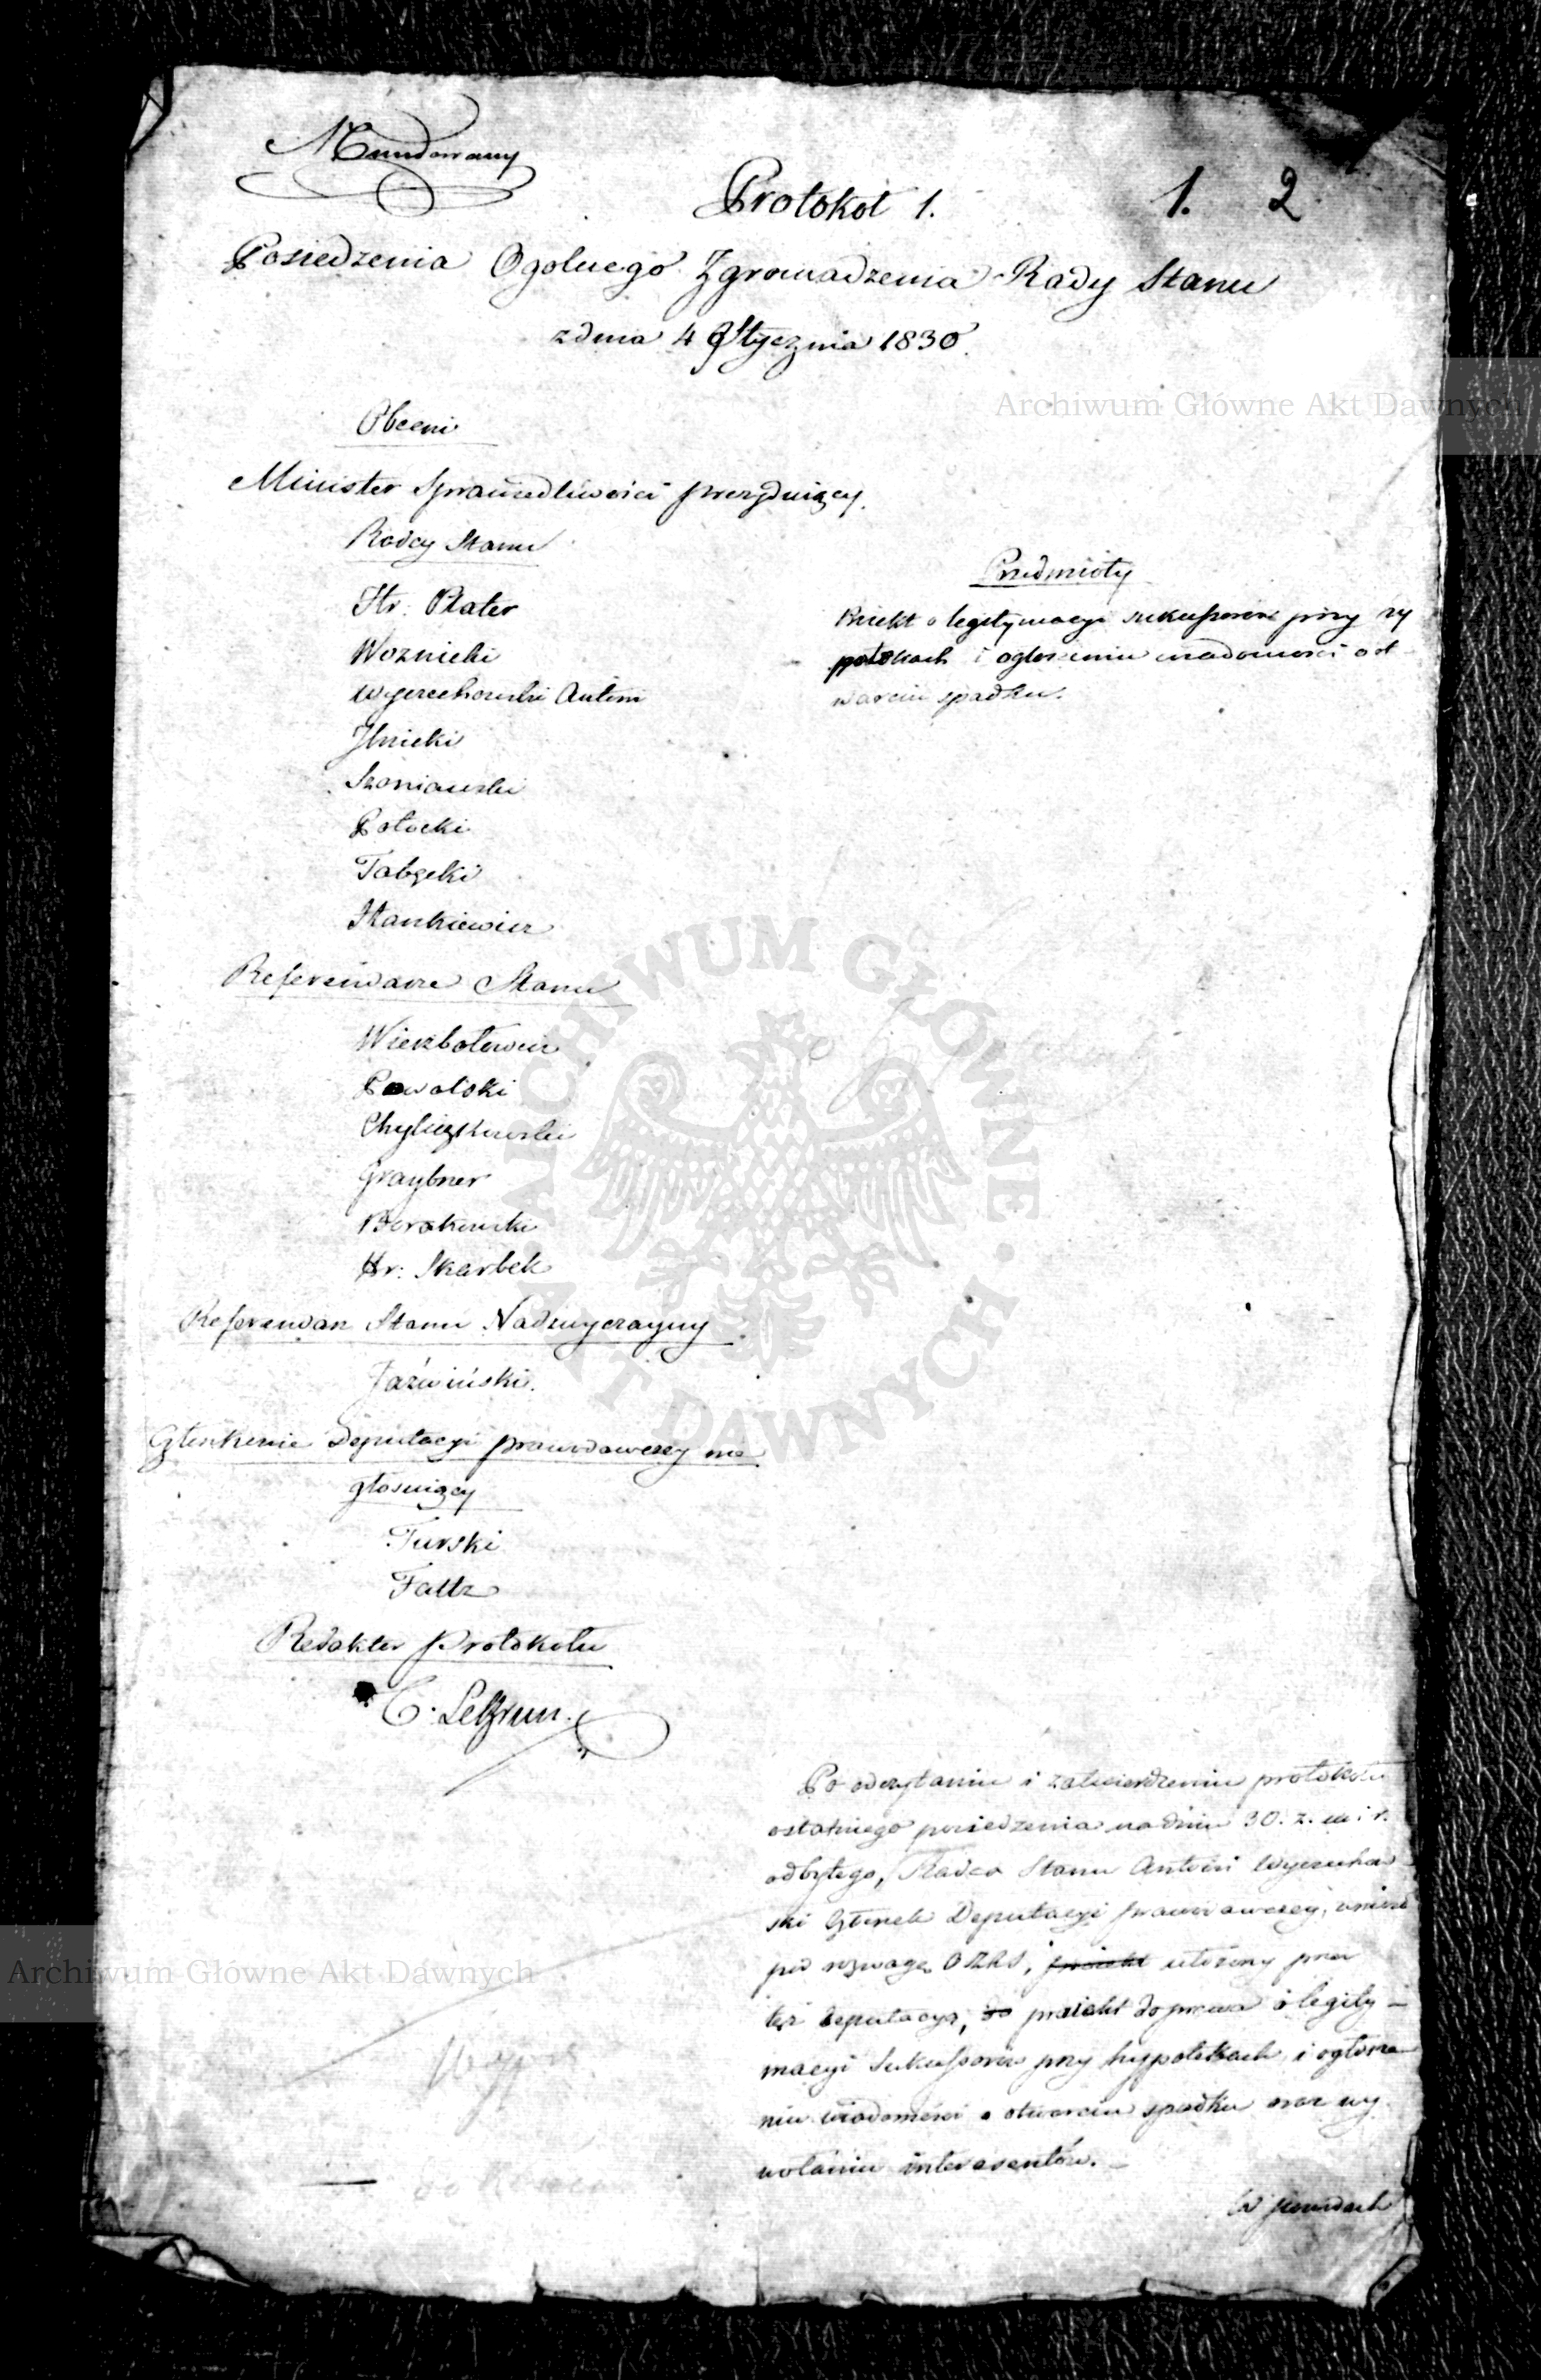 Mundowany
Protokoł 1.
1. 2
Posiedzenia Ogolnego Zgromadzenia Rady Stanu
z dnia 4 Stycznia 1830.
Obecni
Minister Sprawiedliwości prezyduiący.
Radcy Stanu
Hr: Plater
Woznicki
Wyczechowski Antoni
Ilnicki
Szaniawski
Potocki
Tabęcki
Stankiewicz
Referendarze Stanu
Wierzbołowicz
Powalski
Chyliczkowski
Graybner
Borakowski
Hr: Skarbek
Referendarz Stanu Nadzwyczayny
Jaźwiński.
Członkowie Deputacyi prawodawczey nie
głosuiący
Turski
Faltz
Redaktor Protokołu
C. LeBrun.
Przedmioty
Proiekt o legitymacyi sukcessorów przy hy
potekach i ogłoszeniu wiadomości o ot
warciu spadku.
Po odczytaniu i zatwierdzeniu protokołu
ostatniego posiedzenia na dniu 30. z. m. i r.
odbytego, Radca Stanu Antoni Wyczechow
ski Członek Deputacyi prawodawczey, wniosł
pod rozwagę OZRS, proiekt ułożony przez
też deputacyą, do proiekt do prawa o legity-
macyi Sukcessorów przy hypotekach i ogłosze
niu wiadomości o otwarciu spadku oraz wy
wołaniu interesentów.
W powodach
Archiwum Główne Akt Dawnych
ARCHIWUM GŁÓWNE AKT DAWNYCH
Archiwum Główne Akt Dawnych